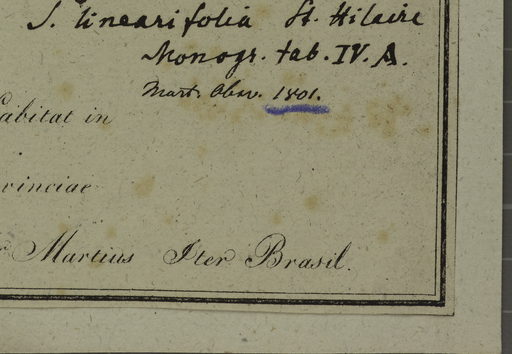 S. linearifolia St. Hilaire
Monogr. tab. IV. A.
Mart. Obsv. 1801.
abitat in
vinciae
Martius Iter Brasil.